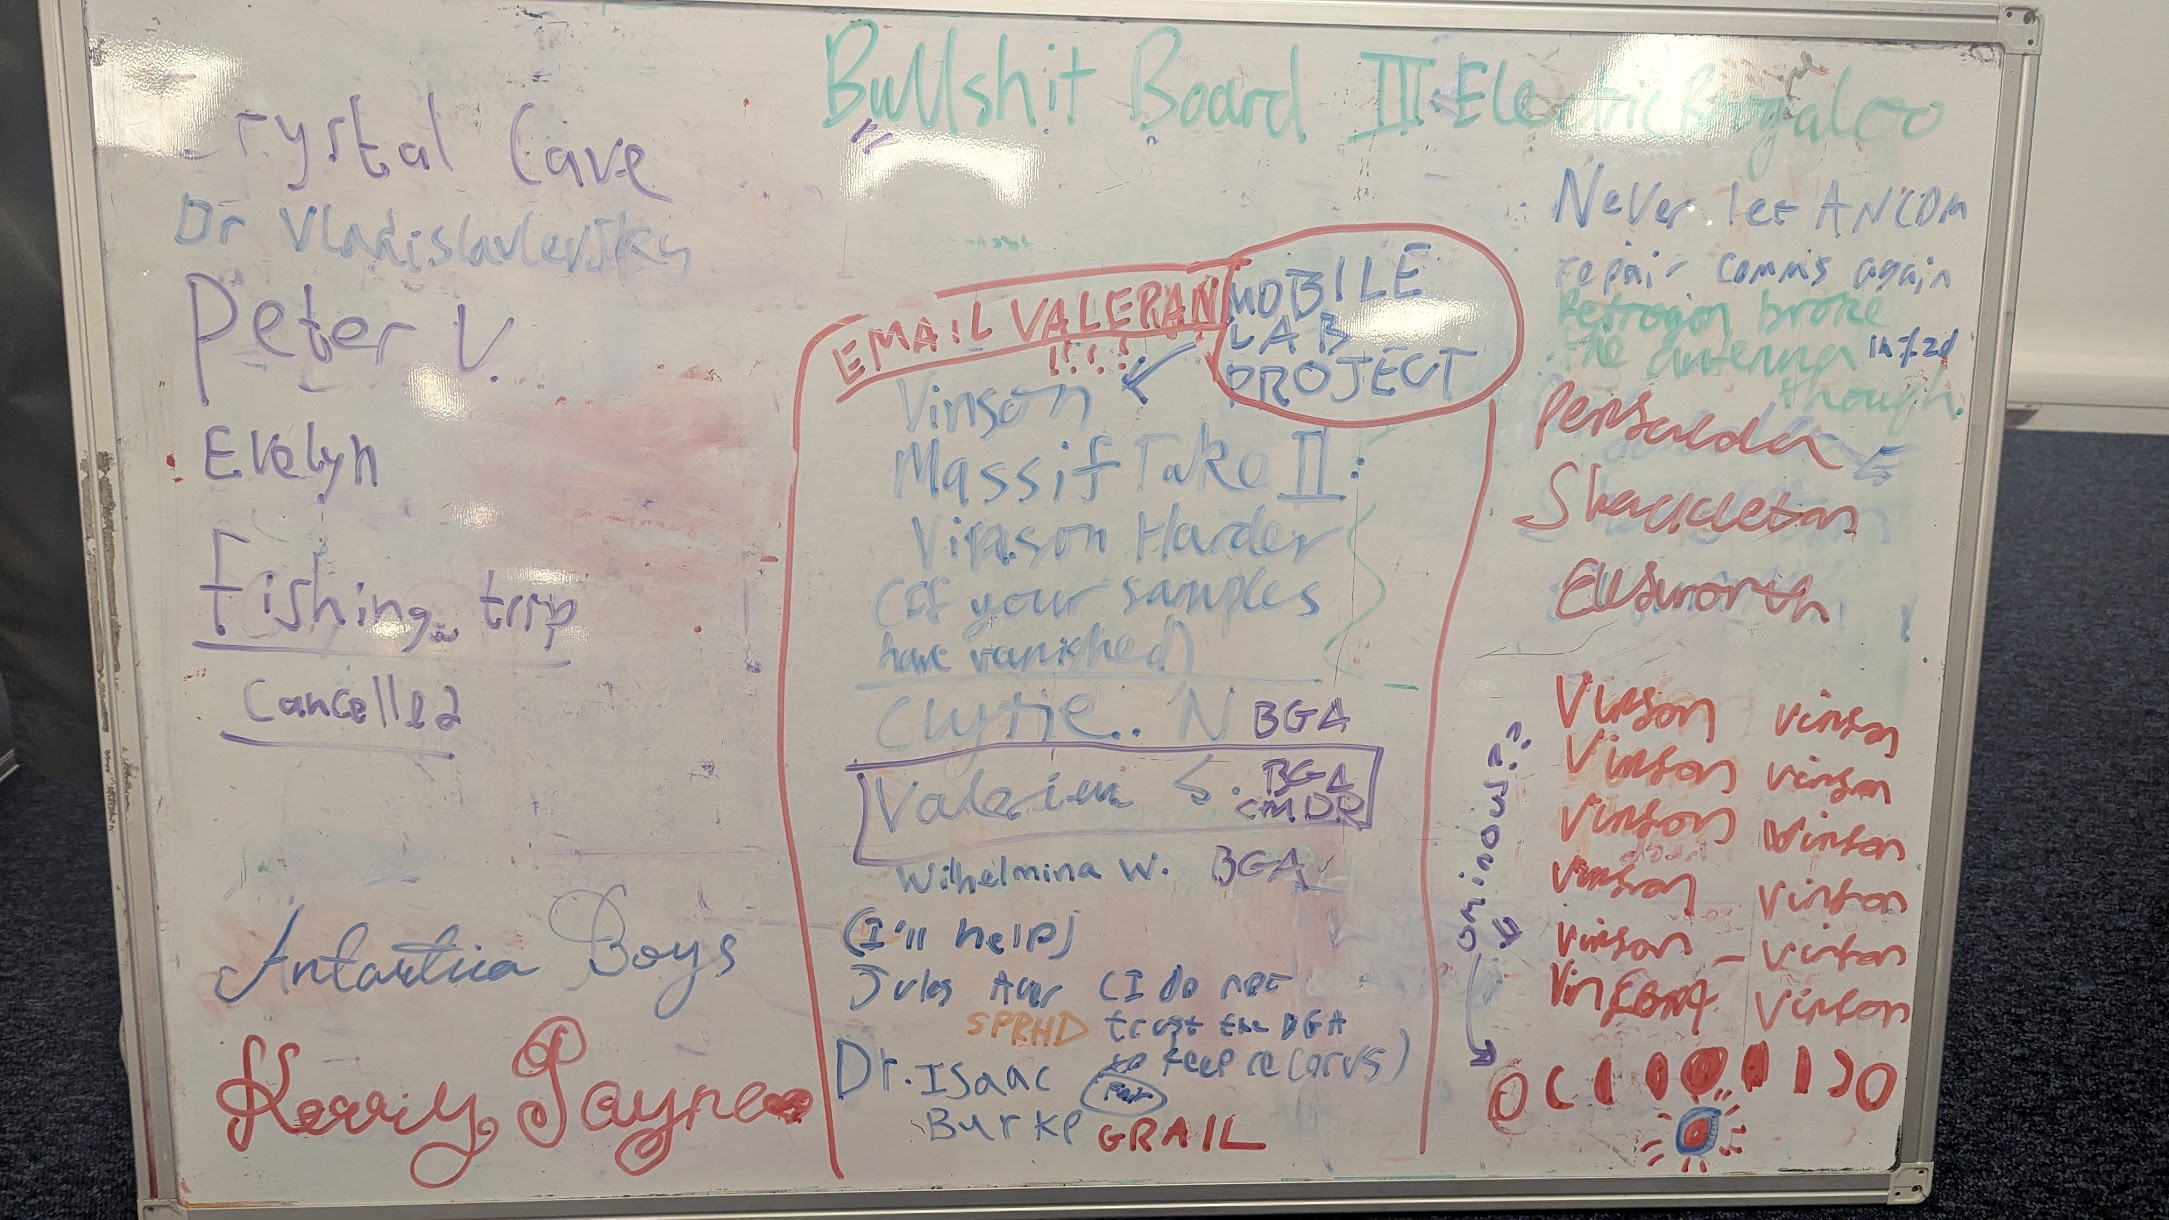 Bullshit Board III: Electric Boogaloo
Crystal Cave
Dr Vladislavlevsky
Peter V.
Evelyn
Fishing trip
Cancelled
Antartica Boys
Kerrily Payne
EMAIL VALERAN
!!!!
MOBILE
LAB
PROJECT
Vinson
Massif Take II:
Vinson Harder
(If your samples
have vanished)
Clytie. N BGA
Valerian S. BGA
CMDR
Wilhelmina W. BGA
(I'll help)
Jules (I do not
SPRHD trust the BGA
to keep records)
Dr. Isaac
Burke GRAIL
Never let ANCOM
repair comms again
Petrogon broke
the antenna
though.
Shackleton
Ellsworth
ominous??
Vinson Vinson
Vinson Vinson
Vinson Vinson
Vinson Vinson
Vinson - Vinson
Vinson Vinson